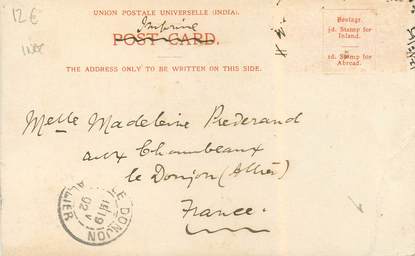 12€
UNION POSTALE UNIVERSELLE (INDIA).
Imprimé
POST CARD.
THE ADDRESS ONLY TO BE WRITTEN ON THIS SIDE.
Postage.
½d. Stamp for
Inland.
1d. Stamp for
Abroad.
Melle Madeleine
aux Chambeaux
le Donjon (Allier)
France.
LE DONJON
ALLIER